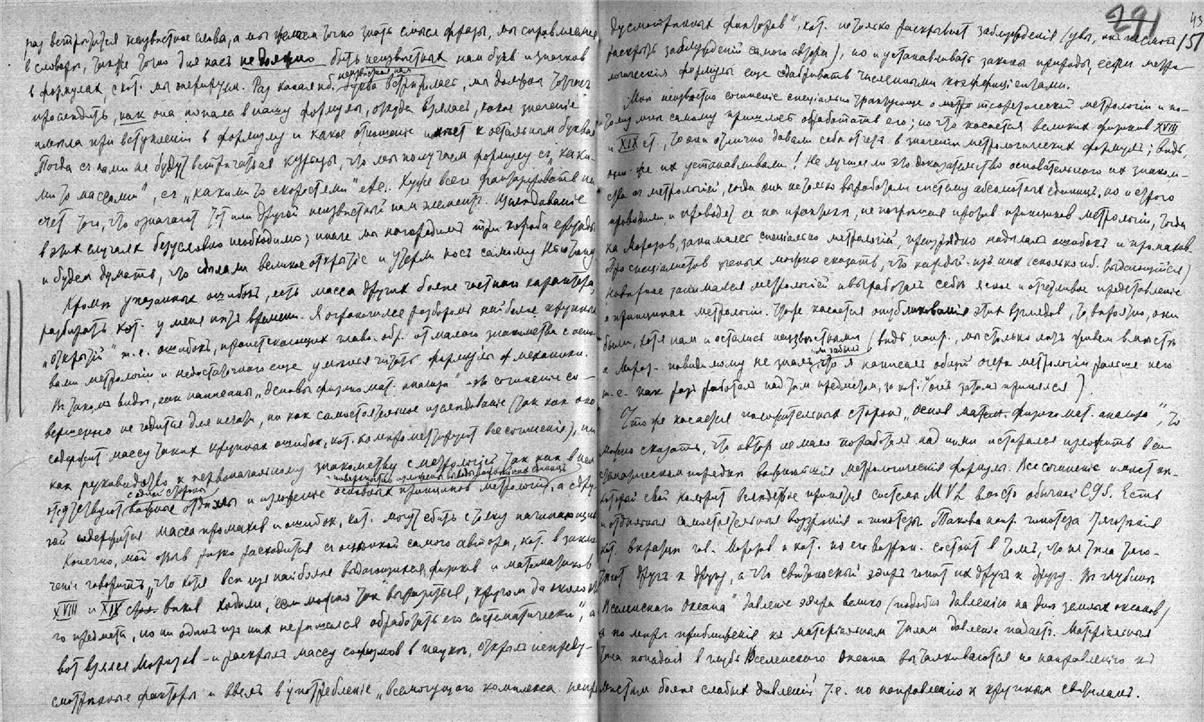 раз встретится неизвестное слово, а мы желаем точно знать смысл фразы, мы справляемся
в словаре, также точно для нас не должно быть неизвестных нам букв и значков
в формулах, с кот. мы оперируем. Раз какая нб. неизвестная нам буква встретилась, мы должны
проследить, как она попала в нашу формулу, откуда взялась, какое значение
имела при вступлении в формулу и какое отношение имеет к остальным буквам
Тогда с нами не будут встречаться курьезы, что мы получаем формулу съ „каки-
ми то массами", съ „какими то скоростями" etc. Хуже всего фантазировать на
счет того, что означает тот или другой неизвестный нам элемент. Исследование
в этих случаях безусловно необходимо; иначе мы нагородим три короба ерунды
и будем думать, что сделали великое открытие и утерли нос самому Ньютону
Кроме указанных ошибок, есть масса других более частного характера,
разбирать кот. у меня нет времени. Я ограничился разбором наиболее крупных
„открытий" т.е. ошибок, проистекающих главн. обр. от малого знакомства с осно-
вами метрологии и недостаточного еще умения читать формулы физ. механики.
В таком виде, как написаны „Основы физико мат. анализа" - это сочинение со-
вершенно не годится для печати, ни как самостоятельное исследование (так как оно
содержит массу таких крупных ошибок, кот. компрометируют все сочинение), ни
как руководство к первоначальному знакомству с метрологией (так как в нем
отсутствуют важные отделы и изложение основных принципов метрологии, а с дру-
гой содержится масса промахов и ошибок, кот. могут сбить с толку начинающих
Конечно, мой отзыв резко расходится с оценкой самого автора, кот. в заклю-
чение говорит, „что хотя все из наиболее выдающихся физиков и математиков
XVIII и XIX веков ходили, если можно так выразиться, кругом да около это-
го предмета, но ни один из них не решился обработать его систематически", а
вот взялся Морозов - и раскрыл массу софизмов в науке, открыл непреду-
смотренные факторы и ввел в употребление „всемогущего комплекса непре-
291
дусмотренных факторов", кот. не только раскрывает заблуждения (увы, он не смог
раскрыть заблуждений самого автора), но и устанавливать законы природы, если метро-
логические формулы еще сдабривать численными коэффициентами.
Мне неизвестно сочинение специально трактующее о теоретической метрологии и по-
тому мне самому пришлось обработать его; но что касается великих физиков XVIII
и XIX ст., то они отлично давали себе отчет в значении метрологических формул; ведь
они же их устанавливали! Не лучшее ли это доказательство основательного их знаком-
ства с метрологией, когда они не только выработали систему абсолютных единиц, но и строго
проводили и проводят ее на практике, не погрешая против принципов метрологии, тогда
как Морозов, занимаясь специально метрологией, преизрядно наделал ошибок и промахов
Про специалистов ученых можно сказать, что каждый из них (сколько нб. выдающийся)
наверное занимался метрологией и выработал себе ясное и отчетливое представление
о принципах метрологии. Что же касается опубликования этих взглядов, то вероятно, они
были, хотя нам и остались неизвестными (ведь напр., мы столько лет живем вместе
а Мороз. повидимому не знает или забыл, что я написал общий очерк метрологии раньше него
т.е. как раз работал над тем предметом, за кот. он затем принялся)
Что же касается положительных сторон „основ физико мат. анализа", то
можно сказать, что автор не мало поработал над ними и старался изложить в си-
стематическом порядке важнейшие метрологические формулы. Все сочинение имеет не-
который свой колорит вследствие принятия системы MVL вместо обычной CGS. Есть
и отдельные самостоятельные воззрения и гипотезы. Такова напр. гипотеза тяготения
кот. вкратце гов. Морозов и кот. по его воззрен. состоит в том, что не тела тяго-
теют друг к другу, а что светоносный эфир гонит их друг к другу. В глубине
„Вселенского Океана" давление эфира велико (подобно давлению на дне земных океанов)
и по мере приближения к материальным телам давление падает. Материальные
тела попадая в глубь Вселенского Океана выталкиваются по направлению к
местам более слабых давлений т.е. по направлению к крупным светилам.